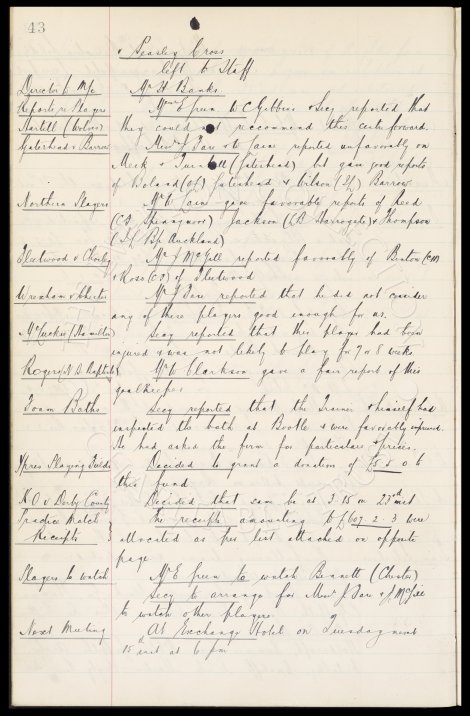 43
& Peasley Cross
left to Staff
Director to M/c
Mr H Banks
Reports re Players
Messrs E Green, W C Gibbins & Secy reported that
Martell (Wolves)
they could not recommend this centre forward.
Gateshead v Barrow
Messrs J Fare & W Cain reported unfavorably on
Meek & (Gateshead) but gave good reports
of Boland (OL) Gateshead & Wilson Barrow.
Northern Players
Mr W Cain gave favorably reports of Reed
(CB Spennymoor) Jackson (LB Harrogate) & Thompson
(Bp Auckland)
Fleetwood v Chorley
Mr J McGill reported favorably of Benton (CH)
& Ross (OR) of Fleetwood
Wrexham v Chester
Mr J Fare reported that he did not consider
any of these players good enough for us.
McCuckie (Hamilton)
Secy reported that this player had been
injured & was not likely to play for 7 or 8 weeks
Rogers
Mr W Clarkson gave a fair report of this
goalkeeper
Foam Baths
Secy reported that the Trainer & himself had
inspected the bath at Bootle & were favorably impressed.
He had asked the firm for particulars & prices.
Xpress Playing Fields
Decided to grant a donation of £5 5 0 to
this fund
K.O v Derby County
Decided that same be at 3.15 on 23rd inst
Practice Match
The receipts amounting to £607. 2. 3 were
Receipts
allocated as per list attached on opposite
page
Players to watch
Mr E Green to watch Bennett (Chester)
Secy to arrange for Messrs J Fare & J McGill
to watch other players
Next Meeting
At Exchange Hotel on Tuesday next
15 inst at 6 pm